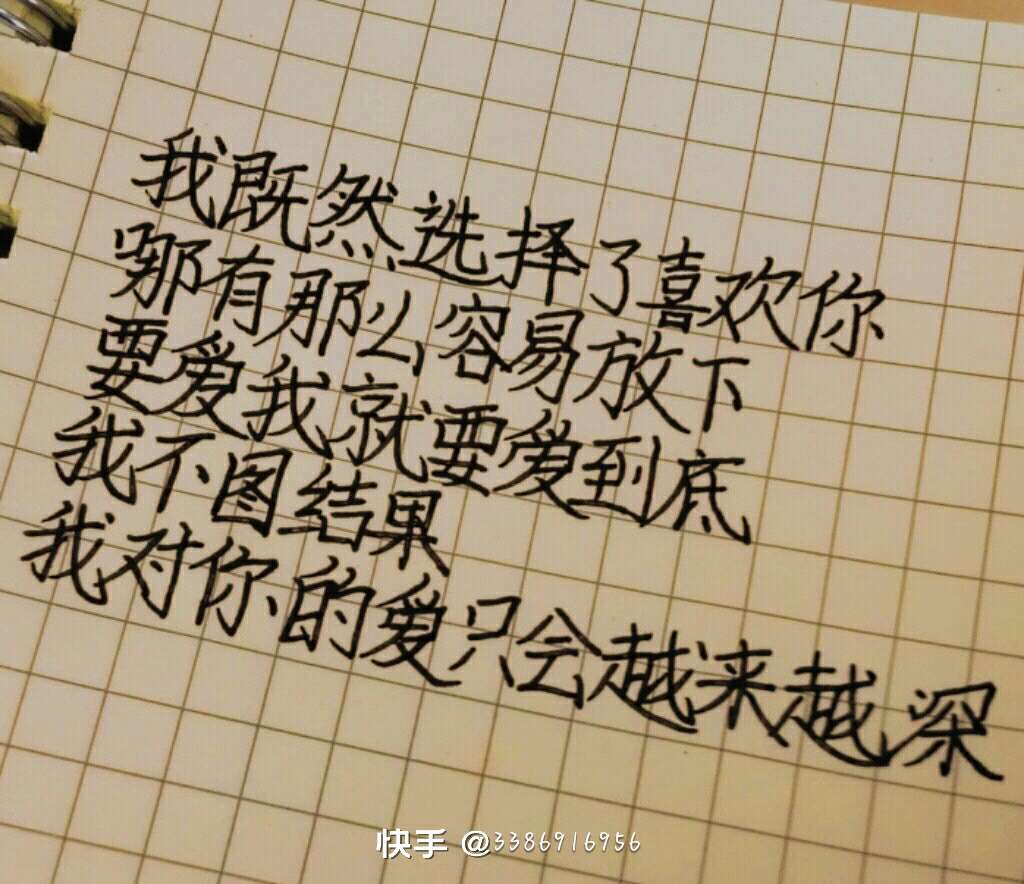 我既然选择了喜欢你
哪有那么容易放下
要爱我就要爱到底
我不图结果
我对你的爱只会越来越深
快手 @3386916956